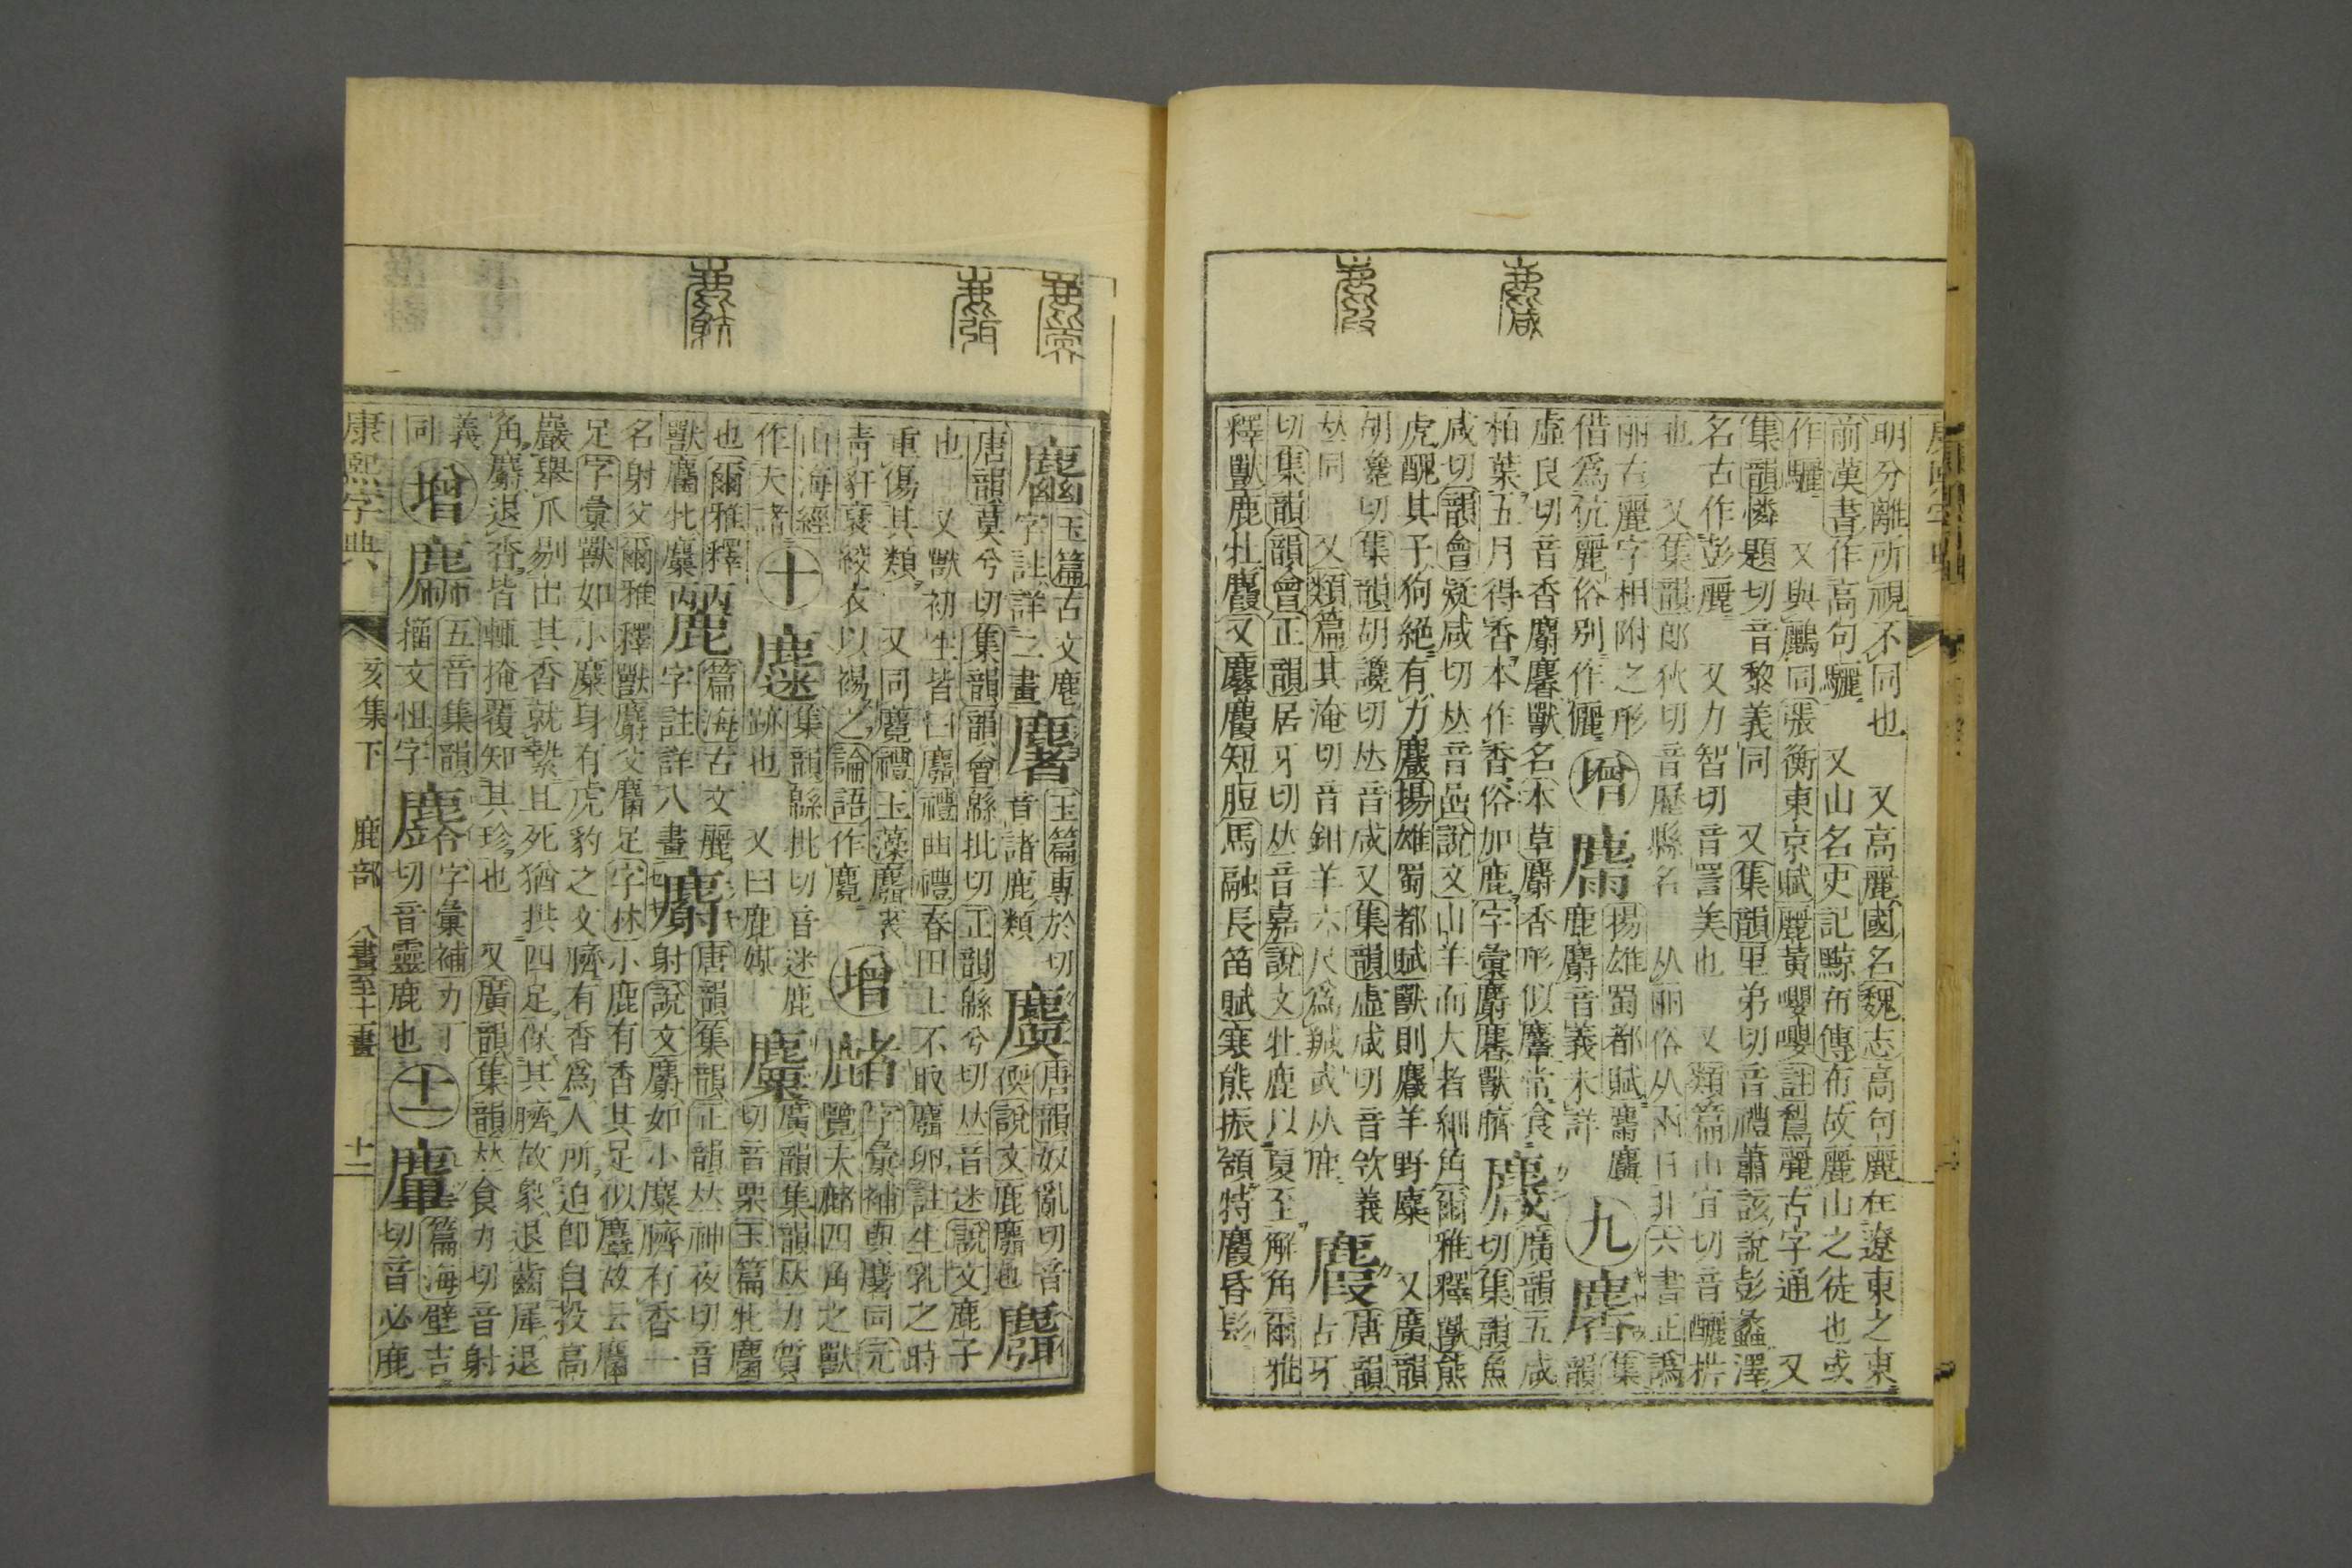 明分離所視不同也　又高麗國名魏志高句麗在遼東之東
前漢書作高句驪　又山名史記黥布傳布故麗山之徒也或
作驪　又與鸝同張衡東京賦麗黃嚶嚶註鵹麗古字通　又
集韻憐題切音黎義同　又集韻里弟切音禮蕭該說彭蠡澤
名古作彭麗　又力智切音詈美也　又類篇山宜切音釃栟
也　又集韻郎狄切音歷縣名　从丽俗从兩日非六書正譌
丽古麗字相附之形
借爲伉麗俗别作儷
增
麢
揚雄蜀都賦
鹿麝音義未詳
九
麘
集韻
虛良切音香麝麘獸名本草麝香形似麞常食
柏葉五月得香本作香俗加鹿字彙麝麘獸臍
麙
廣韻五咸切集韻魚
咸切韻會疑咸切𠀤音嵒說文山羊而大者細角爾雅釋獸熊
虎醜其子狗絶有力麙揚雄蜀都賦獸則麙羊野麋　又廣韻
胡毚切集韻胡讒切𠀤音咸又集韻虛咸切音欦義
𠀤同　又類篇其淹切音鉗羊六尺爲羬或从鹿
麚
唐韻古牙
切集韻韻會正韻居牙切𠀤音嘉說文牡鹿以夏至解角爾雅
釋獸鹿牡麚又麔麚短脰馬融長笛賦寒熊振頷特麚昏髟
玉篇古文麀
字註詳二畫
玉篇專於切
音諸鹿類
唐韻奴亂切音
偄說文鹿麛也
麛
唐韻莫兮切集韻韻會緜批切正韻緜兮切𠀤音迷說文鹿子
也　又獸初生皆曰麛禮曲禮春田士不取麛卵註生乳之時
重傷其類　又同麑禮玉藻麛裘
靑豻褎絞衣以裼之論語作麑
增
字彙補與麆同元
覽夫諸四角之獸
山海經
作夫諸
十
集韻緜批切音迷鹿
跡也　又曰鹿媒
廣韻集韻𠀤力質
切音栗玉篇牝麕
也爾雅釋
獸麕牝麜
篇海古文麗
字註詳八畫
麝
唐韻集韻正韻𠀤神夜切音
射說文麝如小麋臍有香一
名射父爾雅釋獸麝父麕足字林小鹿有香其足似麞故云麕
足字彙獸如小麋身有虎豹之文臍有香爲人所迫卽自投高
巖舉爪剔出其香就縶且死猶拱四足保其臍故象退齒犀退
角麝退香皆輒掩覆知其珍也　又廣韻集韻𠀤食力切音射
義
同
增
五音集韻
籀文怚字
字彙補力丁
切音靈鹿也
十一
篇海壁吉
切音必鹿
康熙字典
亥集下　鹿部　八畫至十一畫　十二